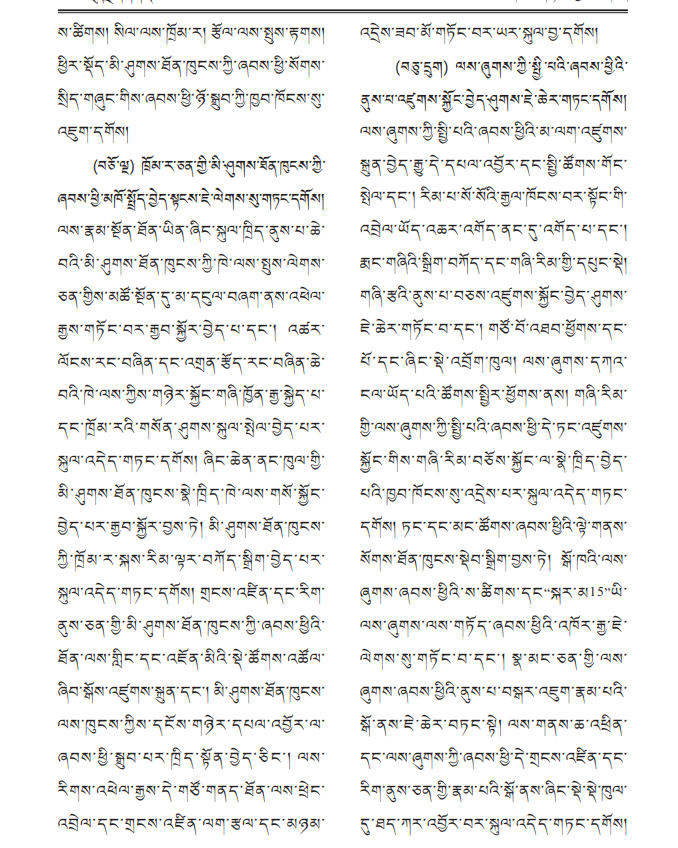 ས་ཚིགས། སིལ་ལས་ཁྲོམ་ར། རྩོལ་ལས་སྤུས་རྟགས།
ཕྱིར་སྡོད་མི་ཤུགས་ཐོན་ཁུངས་ཀྱི་ཞབས་ཕྱི་སོགས་
སྲིད་གཞུང་གིས་ཞབས་ཕྱི་ཉོ་སྒྲུབ་ཀྱི་ཁྱབ་ཁོངས་སུ་
འཇུག་དགོས།
(བཅོ་ལྔ) ཁྲོམ་ར་ཅན་གྱི་མི་ཤུགས་ཐོན་ཁུངས་ཀྱི་
ཞབས་ཕྱི་མཁོ་སྤྲོད་བྱེད་སྟངས་ཇེ་ལེགས་སུ་གཏང་དགོས།
ལས་རྣམ་སྔོན་ཐོན་ཡིན་ཞིང་སྐུལ་ཁྲིད་ནུས་པ་ཆེ་
བའི་མི་ཤུགས་ཐོན་ཁུངས་ཀྱི་ཁེ་ལས་སྤུས་ལེགས་
ཅན་གྱིས་མཚོ་སྔོན་དུ་མ་དངུལ་བཞག་ནས་འཕེལ་
རྒྱས་གཏོང་བར་རྒྱབ་སྐྱོར་བྱེད་པ་དང་། འཚར་
ལོངས་རང་བཞིན་དང་འགྲན་རྩོད་རང་བཞིན་ཆེ་
བའི་ཁེ་ལས་ཀྱིས་གཉེར་སྐྱོང་གཞི་ཁྱོན་རྒྱ་སྐྱེད་པ་
དང་ཁྲོམ་རའི་གསོན་ཤུགས་སྐུལ་སྤེལ་བྱེད་པར་
སྐུལ་འདེད་གཏང་དགོས། ཞིང་ཆེན་ནང་ཁུལ་གྱི་
མི་ཤུགས་ཐོན་ཁུངས་སྣེ་ཁྲིད་ཁེ་ལས་གསོ་སྐྱོང་
བྱེད་པར་རྒྱབ་སྐྱོར་བྱས་ཏེ། མི་ཤུགས་ཐོན་ཁུངས་
ཀྱི་ཁྲོམ་ར་སྐས་རིམ་ལྟར་བཀོད་སྒྲིག་བྱེད་པར་
སྐུལ་འདེད་གཏང་དགོས། གྲངས་འཛིན་དང་རིག་
ནུས་ཅན་གྱི་མི་ཤུགས་ཐོན་ཁུངས་ཀྱི་ཞབས་ཕྱིའི་
ཐོན་ལས་གླིང་དང་འཛོན་མིའི་སྡེ་ཚོགས་འཚོལ་
ཞིབ་སྒོས་འཛུགས་སྐྲུན་དང་། མི་ཤུགས་ཐོན་ཁུངས་
ལས་ཁུངས་ཀྱིས་དངོས་གཉེར་དཔལ་འབྱོར་ལ་
ཞབས་ཕྱི་སྒྲུབ་པར་ཁྲིད་སྟོན་བྱེད་ཅིང་། ལས་
རིགས་འཕེལ་རྒྱས་དེ་གཙོ་གནད་ཐོན་ལས་ཕྲེང་
འབྲེལ་དང་གྲངས་འཛིན་ལག་རྩལ་དང་མཉམ་
འདྲེས་ཟབ་མོ་གཏོང་བར་ཡར་སྐུལ་བྱ་དགོས།
(བཅུ་དྲུག) ལས་ཞུགས་ཀྱི་སྤྱི་པའི་ཞབས་ཕྱིའི་
ནུས་པ་འཛུགས་སྐྱོང་བྱེད་ཤུགས་ཇེ་ཆེར་གཏང་དགོས།
ལས་ཞུགས་ཀྱི་སྤྱི་པའི་ཞབས་ཕྱིའི་མ་ལག་འཛུགས་
སྐྲུན་བྱེད་རྒྱུ་དེ་དཔལ་འབྱོར་དང་སྤྱི་ཚོགས་གོང་
སྤེལ་དང་། རིམ་པ་སོ་སོའི་རྒྱལ་ཁོངས་བར་སྟོང་གི་
འབྲེལ་ཡོད་འཆར་འགོད་ནང་དུ་འགོད་པ་དང་།
རྨང་གཞིའི་སྒྲིག་བཀོད་དང་གཞི་རིམ་གྱི་དཔུང་སྡེ།
གཞི་རྩའི་ནུས་པ་བཅས་འཛུགས་སྐྱོང་བྱེད་ཤུགས་
ཇེ་ཆེར་གཏོང་བ་དང་། གཙོ་བོ་འཐབ་ཕྱོགས་དང་
པོ་དང་ཞིང་སྡེ་འབྲོག་ཁུལ། ལས་ཞུགས་དཀའ་
ངལ་ཡོད་པའི་ཚོགས་སྤྱིར་ཕྱོགས་ནས། གཞི་རིམ་
གྱི་ལས་ཞུགས་ཀྱི་སྤྱི་པའི་ཞབས་ཕྱི་དེ་ཏང་འཛུགས་
སྐྱོང་གིས་གཞི་རིམ་བཅོས་སྐྱོང་ལ་སྣེ་ཁྲིད་བྱེད་
པའི་ཁྱབ་ཁོངས་སུ་འདྲེས་པར་སྐུལ་འདེད་གཏང་
དགོས། ཏང་དང་མང་ཚོགས་ཞབས་ཕྱིའི་ལྟེ་གནས་
སོགས་ཐོན་ཁུངས་སྡེབ་སྒྲིག་བྱས་ཏེ། སྒོ་ཁའི་ལས་
ཞུགས་ཞབས་ཕྱིའི་ས་ཚིགས་དང་“སྐར་མ15”ཡི་
ལས་ཞུགས་ལས་གཏོད་ཞབས་ཕྱིའི་འཁོར་རྒྱ་ཇེ་
ལེགས་སུ་གཏོང་བ་དང་། སྣ་མང་ཅན་གྱི་ལས་
ཞུགས་ཞབས་ཕྱིའི་ནུས་པ་བསྒར་འཇུག་རྣམ་པའི་
སྒོ་ནས་ཇེ་ཆེར་བཏང་སྟེ། ལས་གནས་ཆ་འཕྲིན་
དང་ལས་ཞུགས་ཀྱི་ཞབས་ཕྱི་དེ་གྲངས་འཛིན་དང་
རིག་ནུས་ཅན་གྱི་རྣམ་པའི་སྒོ་ནས་ཞིང་སྡེ་སྡེ་ཁུལ་
དུ་ཐད་ཀར་འབྱོར་བར་སྐུལ་འདེད་གཏང་དགོས།